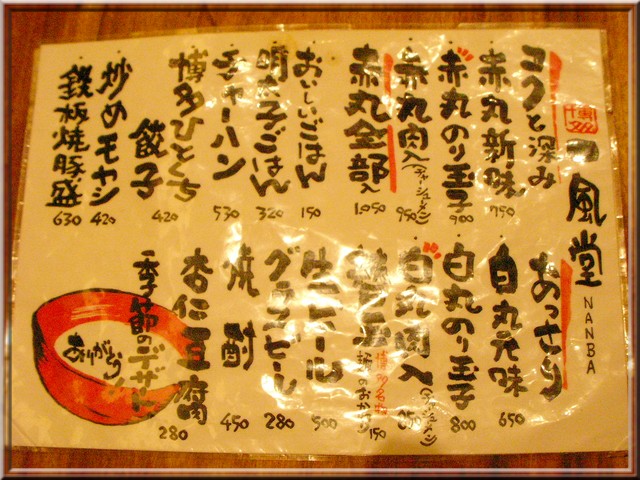 一風堂
NANBA
コクと深み
赤丸新味 750
赤丸のり玉子 900
赤丸肉入(チャーシューメン) 950
赤丸全部入 1,050
おいしいごはん 150
明太子ごはん 320
チャーハン 530
博多ひとくち餃子 420
炒めモヤシ 420
鉄板焼豚盛 630
あっさり
白丸元味 650
白丸のり玉子 800
白丸肉入(チャーシューメン) 850
替玉 博多名物 麺のおかわり 150
生ビール 500
グラスビール 280
焼酎 450
杏仁豆腐 280
季節のデザート
ありがとう